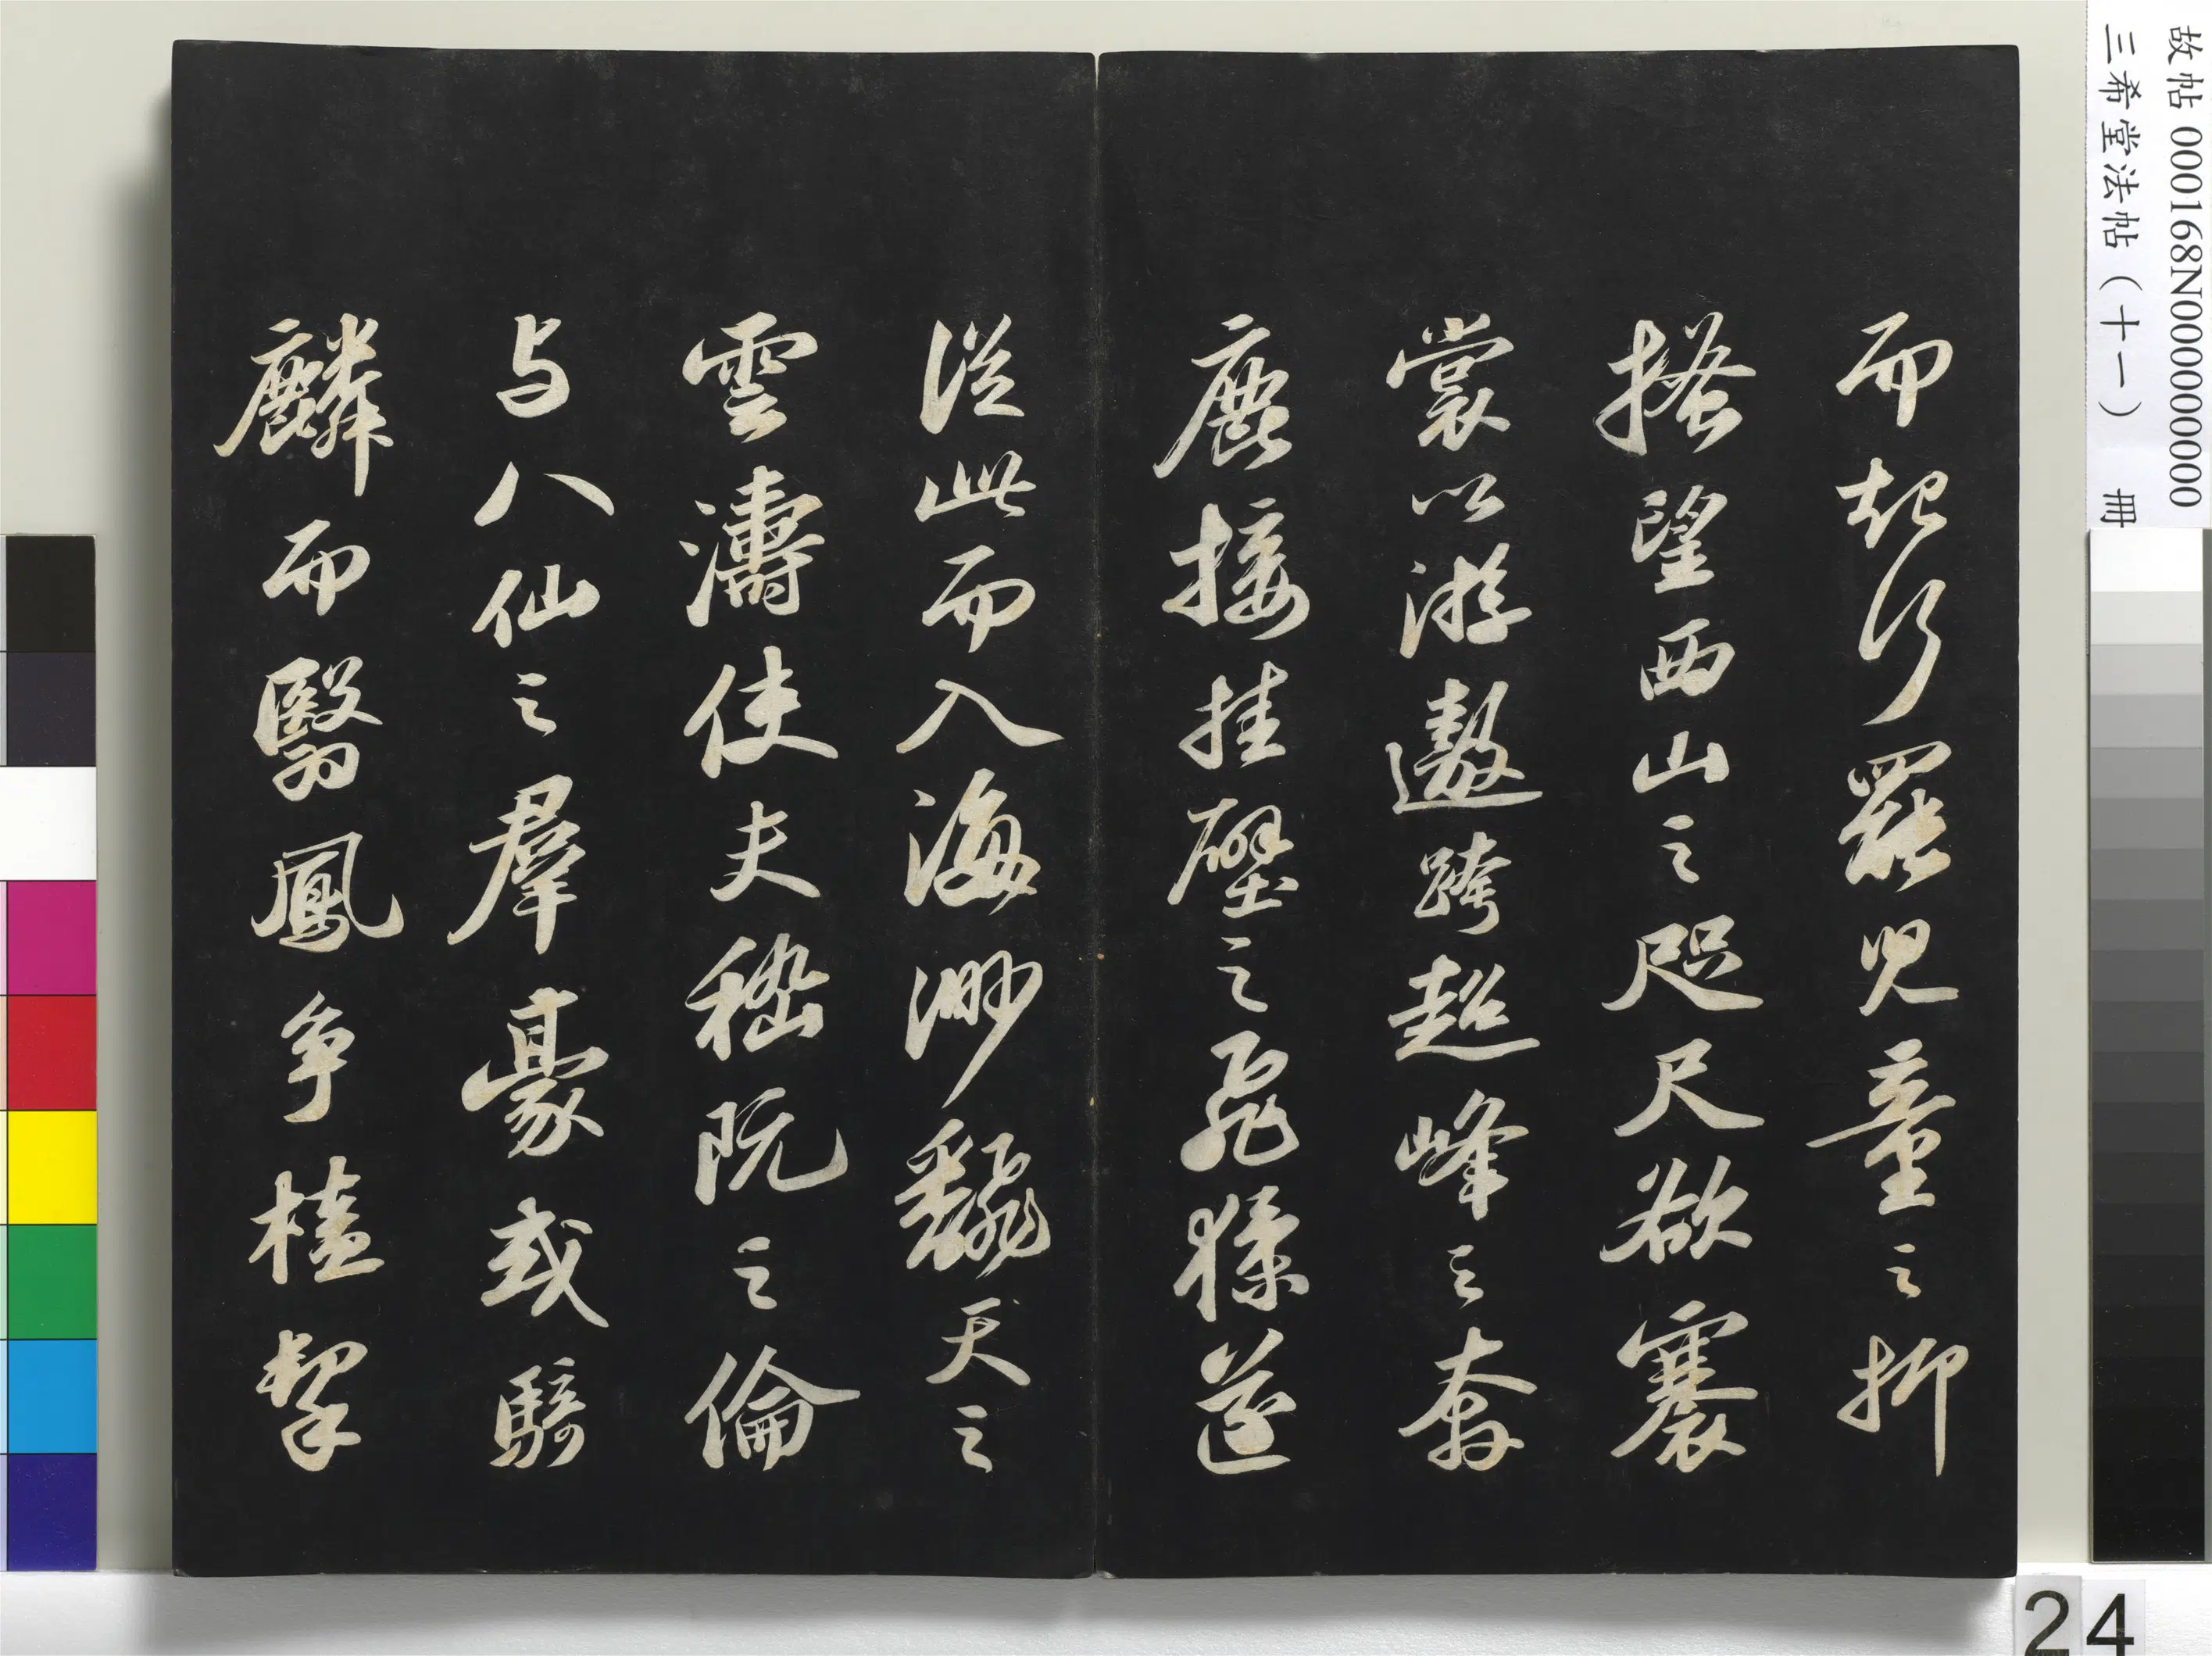 故帖 000168N000000000
三希堂法帖（十一） 冊
而起行罷児童之抑
搔望西山之咫尺欲褰
裳以游遨跨超峰之奔
鹿接挂壁之飛猱遂
従此而入海渺翻天之
雲濤使夫嵇阮之倫
与八仙之羣豪或騎
麟而翳鳳争榼挈
24